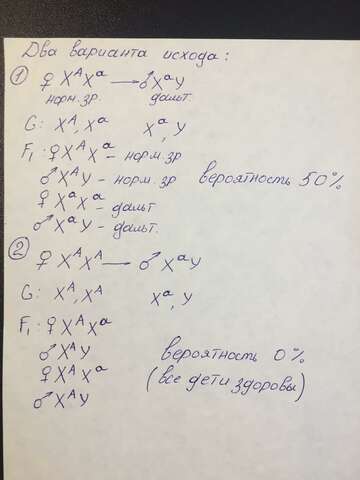 Два варианта исхода:
① ♀ XᴬXᵃ → ♂XᵃY
норм.зр. дальт.
G: Xᴬ, Xᵃ Xᵃ, Y
F₁: ♀ XᴬXᵃ – норм.зр
♂XᴬY – норм.зр вероятность 50%
♀ XᵃXᵃ – дальт
♂XᵃY – дальт.
② ♀ XᴬXᴬ → ♂ XᵃY
G: Xᴬ, Xᴬ Xᵃ, Y
F₁: ♀XᴬXᵃ
♂XᴬY вероятность 0%
♀XᴬXᵃ (все дети здоровы)
♂XᴬY